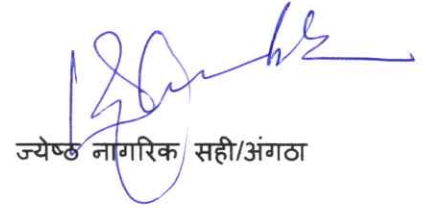 ज्येष्ठ नागरिक सही/अंगठा